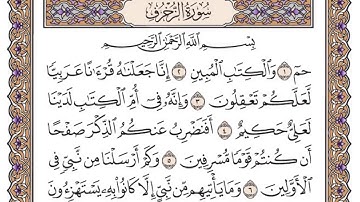 سُورَةُ الزُّخْرُفِ
بِسْمِ اللَّهِ الرَّحْمَٰنِ الرَّحِيمِ
حمٓ ١ وَالْكِتَٰبِ الْمُبِينِ ٢ إِنَّا جَعَلْنَٰهُ قُرْءَٰنًا عَرَبِيًّا
لَّعَلَّكُمْ تَعْقِلُونَ ٣ وَإِنَّهُۥ فِىٓ أُمِّ الْكِتَٰبِ لَدَيْنَا
لَعَلِىٌّ حَكِيمٌ ٤ أَفَنَضْرِبُ عَنكُمُ الذِّكْرَ صَفْحًا
أَن كُنتُمْ قَوْمًا مُّسْرِفِينَ ٥ وَكَمْ أَرْسَلْنَا مِن نَّبِىٍّ فِى
الْأَوَّلِينَ ٦ وَمَا يَأْتِيهِم مِّن نَّبِىٍّ إِلَّا كَانُوا۟ بِهِۦ يَسْتَهْزِءُونَ